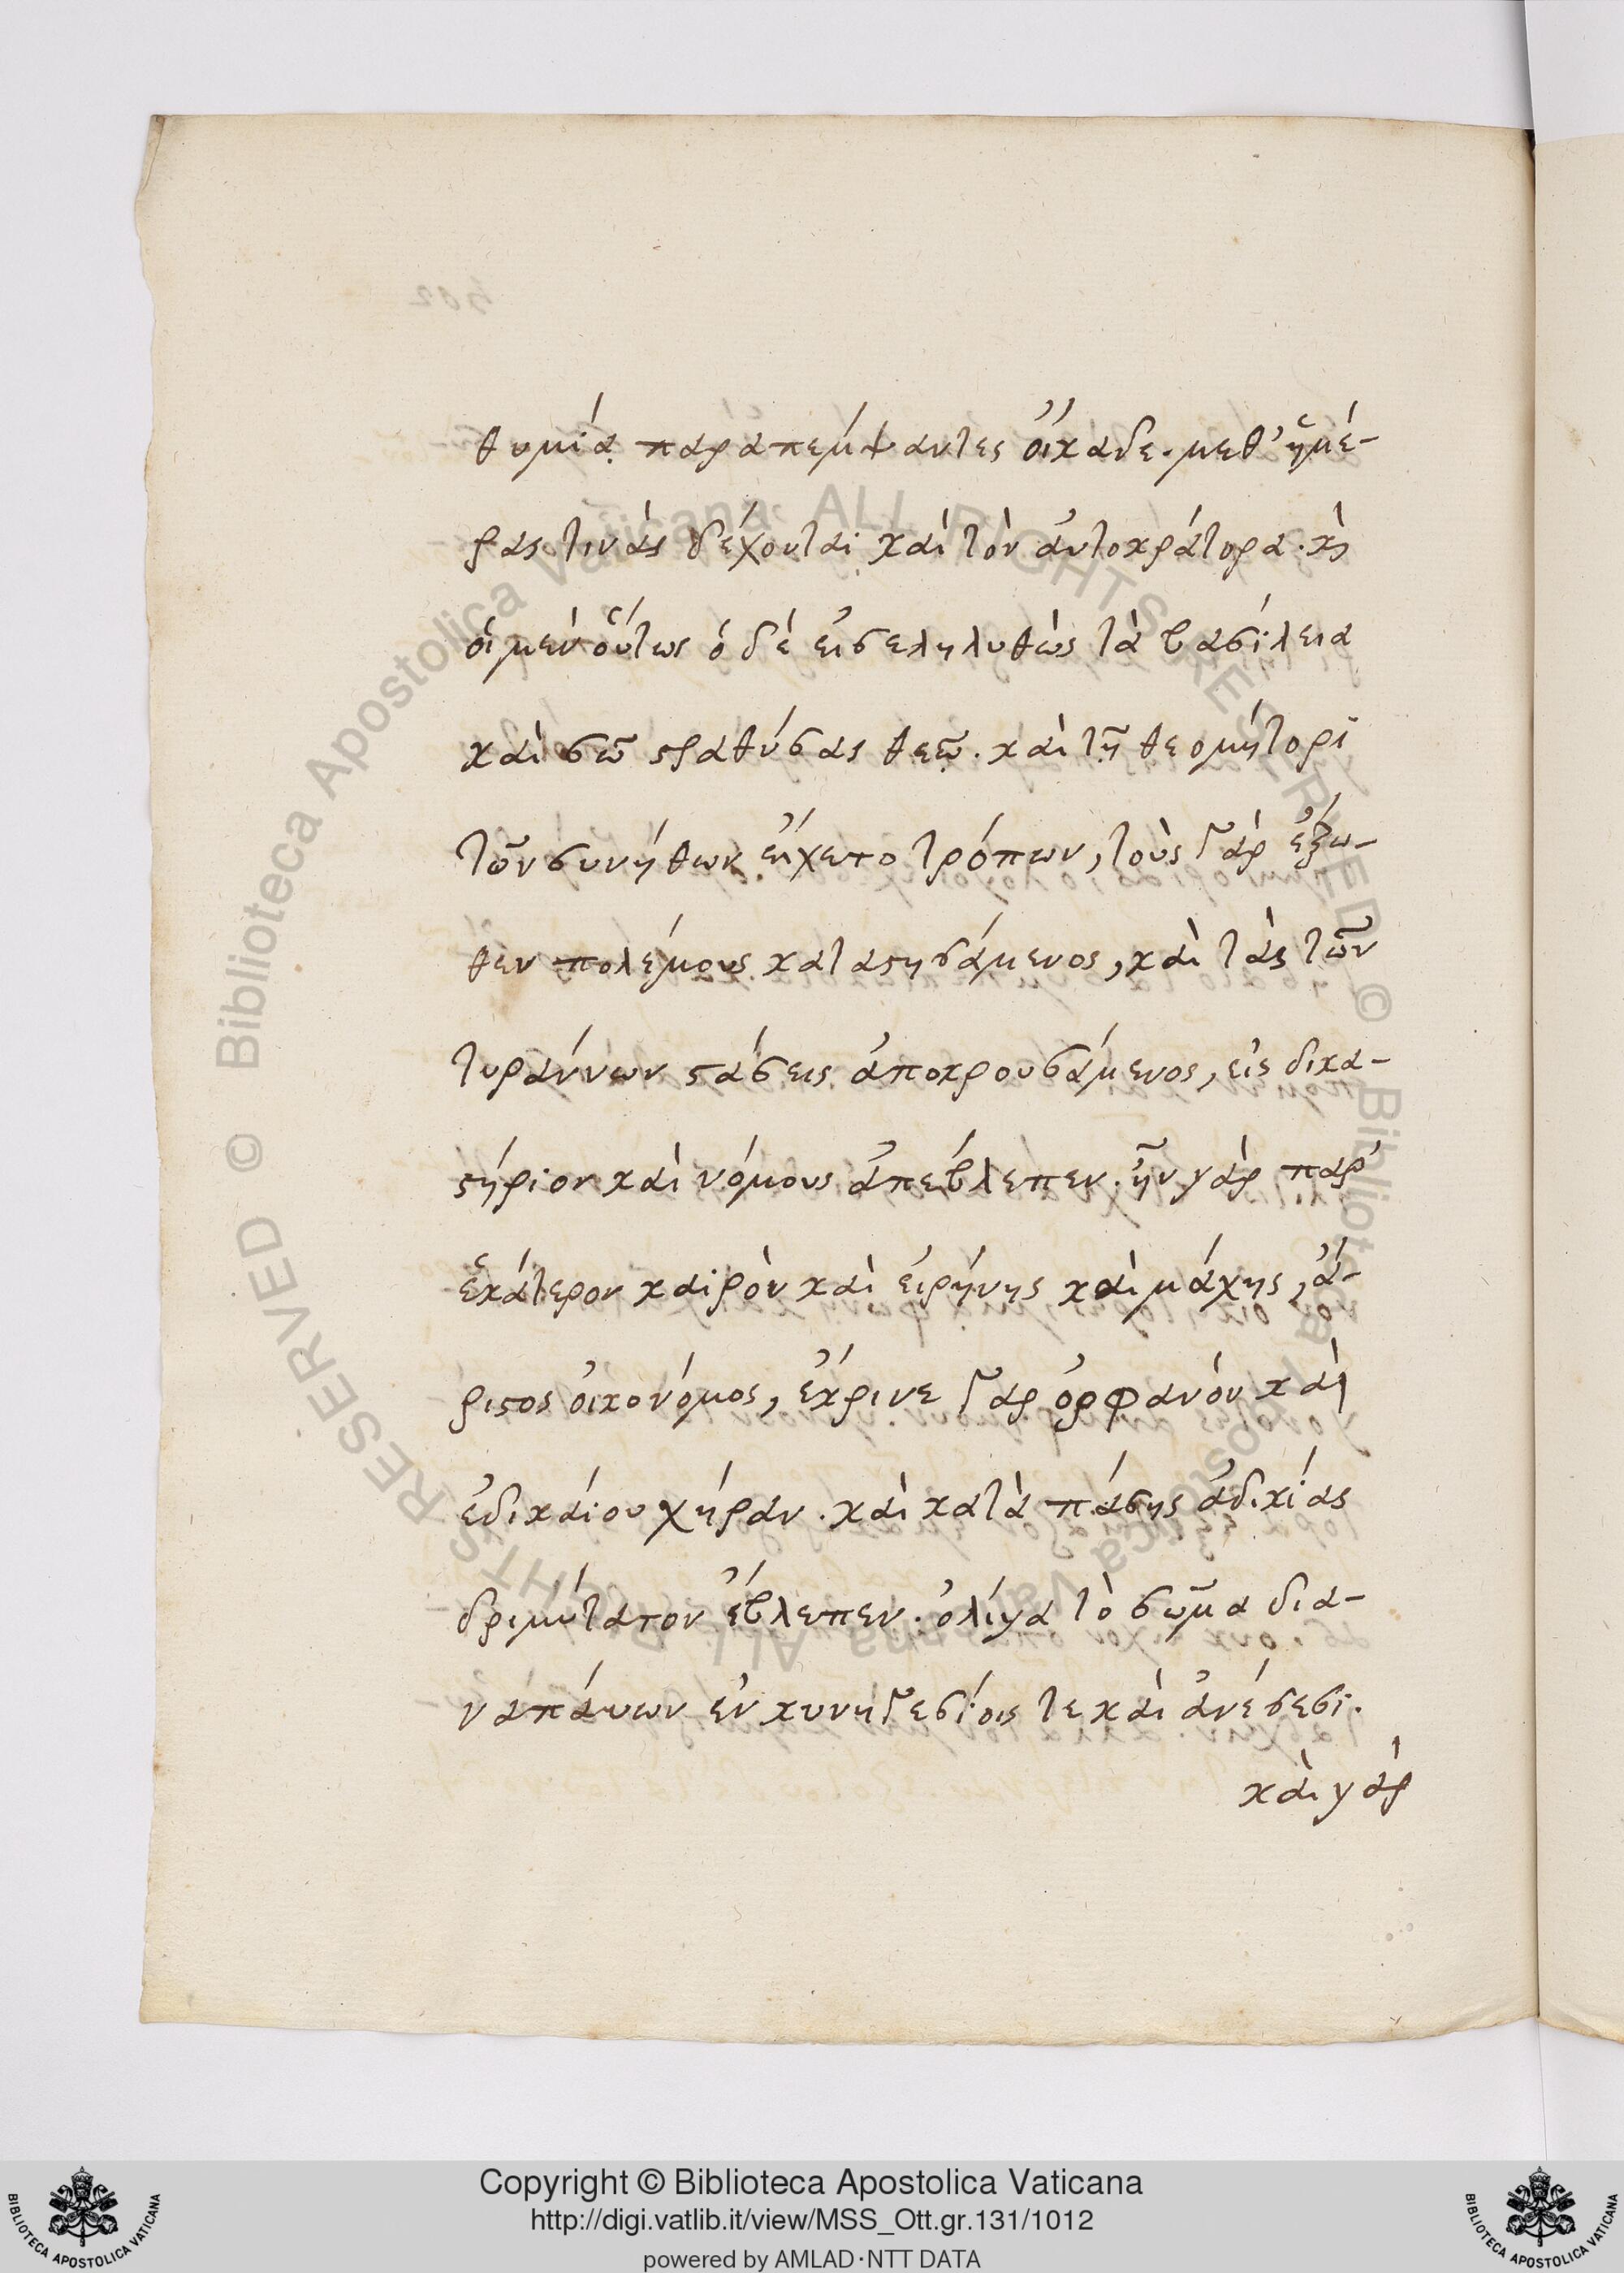 θυμία παραπέμψαντες οἴκαδε. μεθ' ἡμέ-
ρας τινὰς δέχονται καὶ τὸν αὐτοκράτορα. κ̀
οἱ μὲν οὕτως ὁ δὲ εἰσεληλυθὼς τὰ βασίλεια
καὶ σῶστρα θύσας θεῷ. καὶ τῇ θεομήτορι
τῶν συνήθων εἴχετο τρόπων, τοὺς γὰρ ἔξω-
θεν πολέμους καταστησάμενος, καὶ τὰς τῶν
τυράννων στάσεις ἀποκρουσάμενος, εἰς δικα-
στήριον καὶ νόμους ἀπέβλεπεν. ἦν γὰρ παρ'
ἑκάτερον καιρὸν καὶ εἰρήνης καὶ μάχης, ἄ-
ριστος οἰκονόμος, ἔκρινε γὰρ ὀρφανὸν καὶ
ἐδικαίου χήραν. καὶ κατὰ πάσης ἀδικίας
δριμύτατον ἔβλεπεν. ὀλίγα τὸ σῶμα δια-
ναπαύων ἐν κυνηγεσίοις τε καὶ ἀνέσεσι.
καὶ γὰρ
Copyright © Biblioteca Apostolica Vaticana
http://digi.vatlib.it/view/MSS_Ott.gr.131/1012
powered by AMLAD·NTT DATA